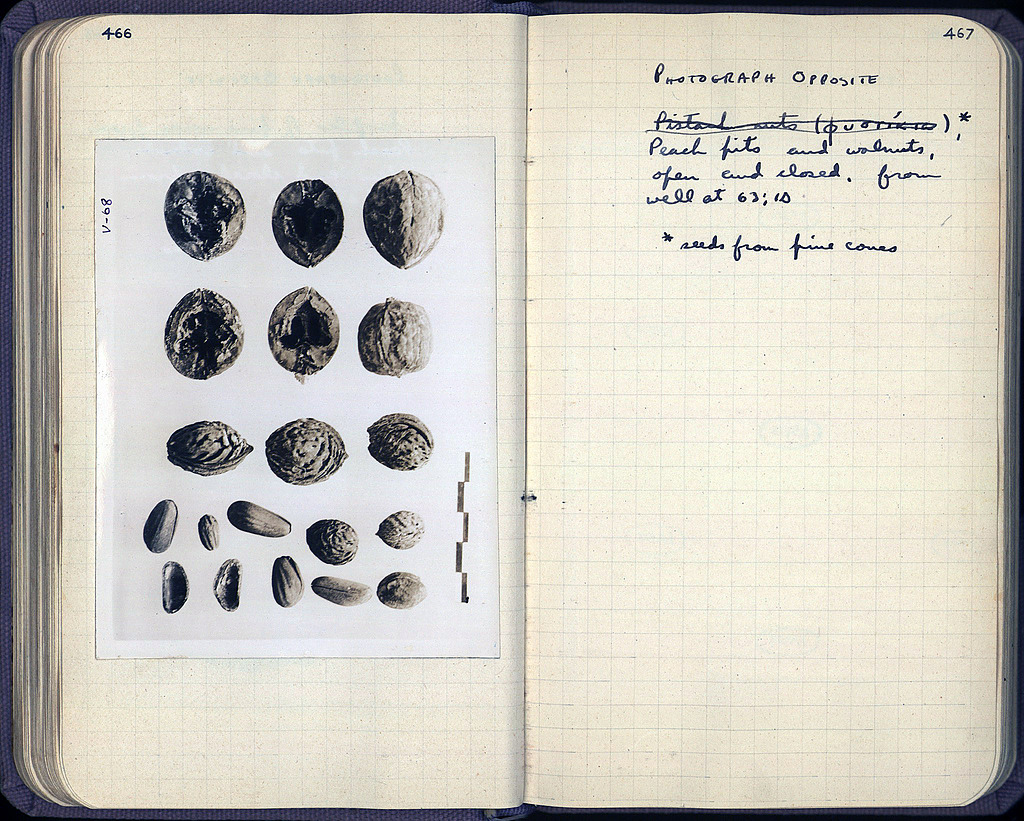 466
V-68
467
PHOTOGRAPH OPPOSITE
Pistach nuts ( ),*
Peach pits and walnuts,
open and closed. from
well at 63; 10
* seeds from pine cones